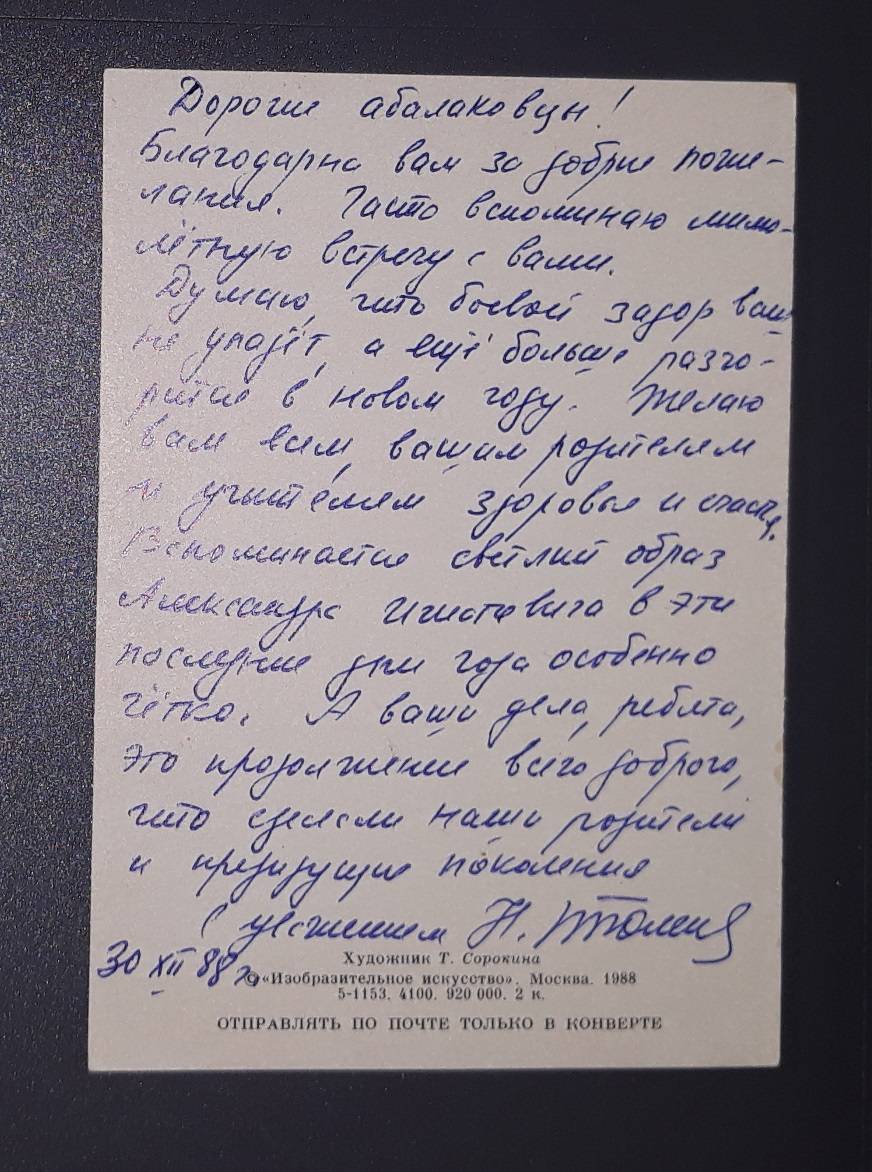 Дорогие абалаковцы!
Благодарна вам за добрые поже-
лания. Часто вспоминаю мимо-
лётную встречу с вами.
Думаю, что боевой задор ваш
не упадёт, а ещё больше разго-
рится в новом году. Желаю
вам всем, вашим родителям
и учителям здоровья и счастья.
Вспоминается светлый образ
Александра Игнатьевича в эти
последние дни года особенно
чётко. А ваши дела, ребята,
это продолжение всего доброго,
что сделали наши родители
и предыдущие поколения
С уважением Н.
30 XII 88 г.
Художник Т. Сорокина
© «Изобразительное искусство». Москва. 1988
5-1153. 4100. 920 000. 2 к.
ОТПРАВЛЯТЬ ПО ПОЧТЕ ТОЛЬКО В КОНВЕРТЕ